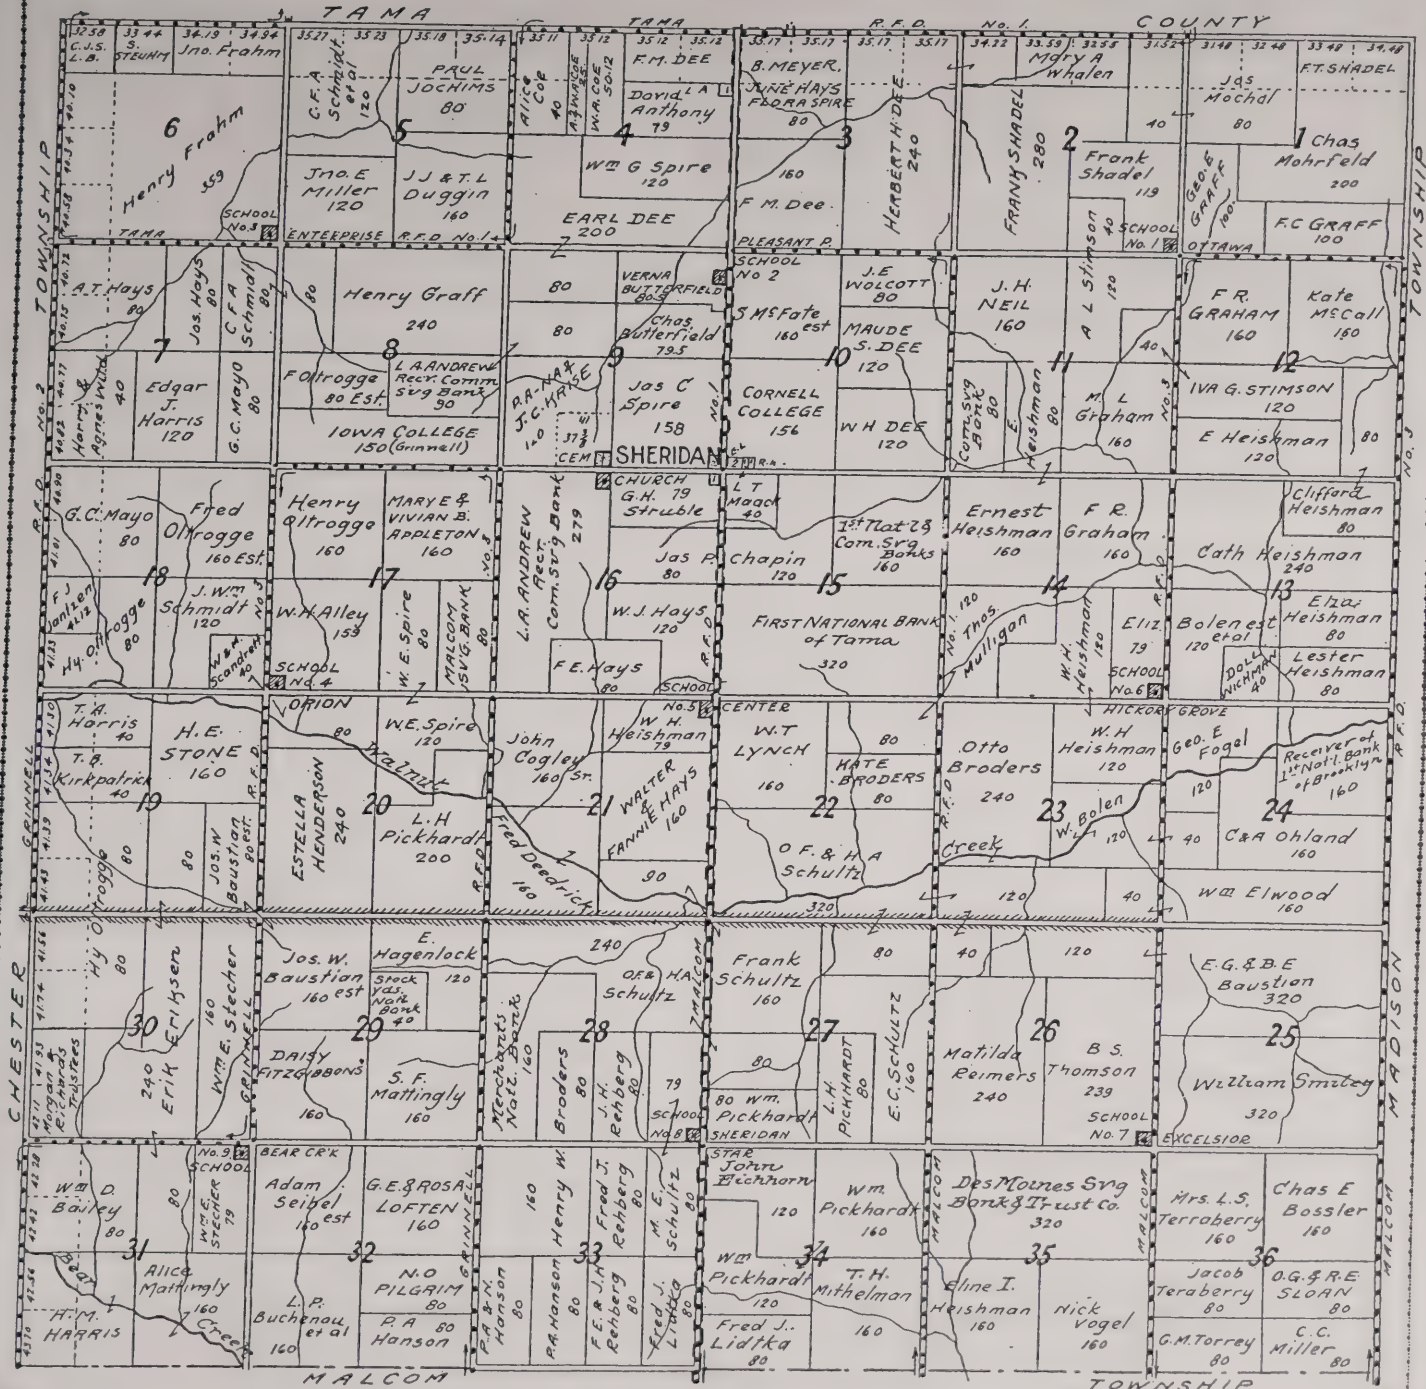 TAMA
TAMA
R.F.D.
No. 1.
COUNTY
TOWNSHIP
No. 2
R.F.D.
GRINNELL
CHESTER
TOWNSHIP
No. 3
R.F.D.
MADISON
MALCOM
32.58
33.44
34.19
34.94
C.J.S.
L.B.
S.
STEUHM
Jno. Frahm
6
Henry Frahm
359
40.10
40.34
40.58
SCHOOL
No. 3
TAMA
35.27
35.23
35.18
35.14
C.F.A.
Schmidt
et al
120
PAUL
JOCHIMS
80
5
Jno. E
Miller
120
JJ & T.L
Duggin
160
ENTERPRISE
R.F.D No. 1
35.11
35.12
35.12
35.12
Alice
Coe
40
W.A. COE
50.12
F.M. DEE
David
Anthony
79
4
Wm G Spire
120
EARL DEE
200
35.17
35.17
35.17
35.17
B. MEYER,
JUNE HAYS
FLORA SPIRE
80
3
160
F M. Dee
HERBERT H. DEE
240
PLEASANT P.
34.22
33.59
32.55
31.52
Mary A
Whalen
FRANK SHADEL
280
2
40
Frank
Shadel
119
SCHOOL
No. 1
31.48
32.48
33.48
34.48
Jas
Mochal
80
F.T. SHADEL
1
Chas
Mohrfeld
200
GEO. E
GRAFF
100
F.C GRAFF
100
OTTAWA
40.72
40.75
40.77
40.82
A.T Hays
80
Jos. Hays
80
C F A
Schmidt
80
7
Harry &
Agnes Wild
40
Edgar
J.
Harris
120
G.C. Mayo
80
80
Henry Graff
240
8
F Oltrogge
80 Est.
L A. ANDREW
Recr. Comm
Svg Bank
90
IOWA COLLEGE
150 (Grinnell)
80
80
VERNA
BUTTERFIELD
80.5
Chas
Butterfield
79.5
9
P.A. - NA &
J.C. KRISE
120
37 3/8
Jas C
Spire
158
CEM
SHERIDAN
No. 1
SCHOOL
No 2
S McFate
160 est
J.E
WOLCOTT
80
MAUDE
S. DEE
120
10
CORNELL
COLLEGE
156
W H DEE
120
J. H.
NEIL
160
A L Stimson
40
120
11
40
Com. Svg
Bank
80
E.
Heishman
80
M. L
Graham
160
No. 3
F R.
GRAHAM
160
Kate
McCall
160
12
IVA G. STIMSON
120
E Heishman
120
80
40.90
41.01
41.12
41.23
G.C. Mayo
80
Fred
Oltrogge
160 Est.
18
F J
Jantzen
Hy. Oltrogge
80
J. Wm
Schmidt
120
W & A.
Scandrett
40
No 3
Henry
Oltrogge
160
MARY E &
VIVIAN B.
APPLETON
160
17
W.H Alley
159
W. E. Spire
80
MALCOM
SVG. BANK
80
SCHOOL
No. 4
No. 3
L.A. ANDREW
Recr.
Com. Svg Bank
279
CHURCH
G.H. 79
Struble
Jas P.
80
16
W.J. Hays
120
F.E. Hays
80
SCHOOL
No. 5
R.F.D
L T
Maack
40
Chapin
120
1st Nat'l &
Com. Svg
Banks
160
15
FIRST NATIONAL BANK
of Tama
320
Ernest
Heishman
160
F R.
Graham
160
14
No. 1. 120
Thos.
Mulligan
W. H.
Heishman
120
Eliz
79
SCHOOL
No. 6
R.F.D
Clifford
Heishman
80
Cath Heishman
240
13
Bolen est
et al
120
Eliza
Heishman
80
DOLL
WICHMAN
40
Lester
Heishman
80
41.30
41.34
41.39
41.43
T. A.
Harris
40
H. E.
STONE
160
T. B.
Kirkpatrick
40
19
80
80
Jos. W
Baustian
80 est.
R. F. D
ORION
80
W.E. Spire
120
Walnut
20
ESTELLA
HENDERSON
240
L. H
Pickhardt
200
R.F.D
John
Cogley
160 Sr.
W H.
Heishman
79
21
WALTER
&
FANNIE HAYS
160
Fred Deedrick
160
90
CENTER
W.T
LYNCH
160
80
KATE
BRODERS
80
22
O F. & H A
Schultz
320
Otto
Broders
240
W. H
Heishman
120
23
W. Bolen
120
Creek
R.F.D
120
40
HICKORY GROVE
Geo. E
Fogel
120
Receiver of
1st Nat'l Bank
of Brooklyn
160
24
40
C & A Ohland
160
Wm Elwood
160
41.56
41.74
41.93
42.11
Hy Oltrogge
80
30
240
Erik Eriksen
160
Wm E. Stecher
Morgan &
Richards
Trustees
GRINNELL
Jos. W.
Baustian
160 est
E.
Hagenlock
120
Stock
Yds.
Natl.
Bank
40
29
DAISY
FITZGIBBONS
160
S. F.
Mattingly
160
240
O.F. & H.A.
Schultz
28
Merchants
Natl. Bank
160
Broders
80
J. H.
Rehberg
80
79
SCHOOL
No 8
MALCOM
Frank
Schultz
160
80
27
80
80 Wm.
Pickhardt
L.H.
PICKHARDT
80
E.C. SCHULTZ
160
SHERIDAN
40
120
26
Matilda
Reimers
240
B S.
Thomson
239
SCHOOL
No. 7
E.G. & B.E
Baustian
320
25
William Smiley
320
EXCELSIOR
42.28
42.42
42.56
43.10
Wm D.
Bailey
80
80
No. 9
SCHOOL
Wm E.
STECHER
79
31
Alice
Mattingly
160
Bear
Creek
H. M.
HARRIS
BEAR CR'K
Adam
Seibel
160 est
G.E & ROSA
LOFTEN
160
32
L. P.
Buchenau
et al
160
N. O
PILGRIM
80
P. A
Hanson
80
GRINNELL
160
Henry W.
Fred J.
Rehberg
80
M. E.
Schultz
80
33
P.A & N.
Hanson
80
P.A. Hanson
80
F E & J.H
Rehberg
80
Fred J.
Lidtka
80
STAR
John
Eichhorn
120
Wm.
Pickhardt
160
34
Wm
Pickhardt
120
T. H.
Mithelman
160
Fred J.
Lidtka
80
MALCOM
Des Moines Svg
Bank & Trust Co.
320
35
Eline I.
Heishman
160
Nick
Vogel
160
MALCOM
Mrs. L.S.
Terraberry
160
Chas E
Bossler
160
36
Jacob
Teraberry
80
O.G. & R.E
SLOAN
80
G.M. Torrey
80
C.C.
Miller
80
MALCOM
TOWNSHIP